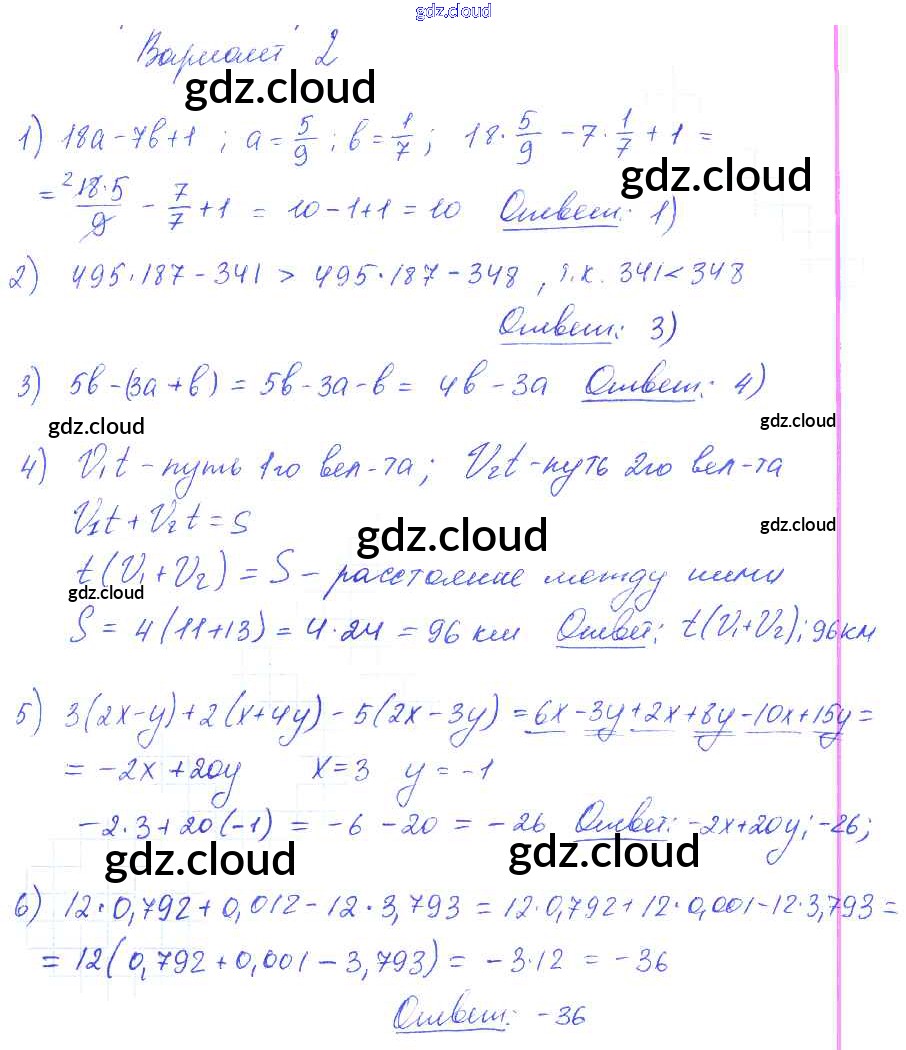 gdz.cloud
Вариант 2
gdz.cloud
1) 18a - 7b + 1 ; a = 5/9 ; b = 1/7 ; 18 · 5/9 - 7 · 1/7 + 1 =
gdz.cloud
= ² 18·5/9 - 7/7 + 1 = 10 - 1 + 1 = 10 Ответ: 1)
2) 495·187 - 341 > 495·187 - 348 , т.к. 341 < 348
Ответ: 3)
3) 5b - (3a + b) = 5b - 3a - b = 4b - 3a Ответ: 4)
gdz.cloud gdz.cloud
4) V₁t - путь 1го вел-та; V₂t - путь 2го вел-та
V₁t + V₂t = S
gdz.cloud gdz.cloud
t(V₁ + V₂) = S - расстояние между ними
gdz.cloud
S = 4(11+13) = 4·24 = 96 км Ответ: t(V₁+V₂); 96 км
5) 3(2x-y) + 2(x+4y) - 5(2x-3y) = 6x - 3y + 2x + 8y - 10x + 15y =
= -2x + 20y x = 3 y = -1
-2·3 + 20(-1) = -6 - 20 = -26 Ответ: -2x+20y; -26;
gdz.cloud gdz.cloud
6) 12·0,792 + 0,012 - 12·3,793 = 12·0,792 + 12·0,001 - 12·3,793 =
= 12(0,792 + 0,001 - 3,793) = -3·12 = -36
Ответ: -36